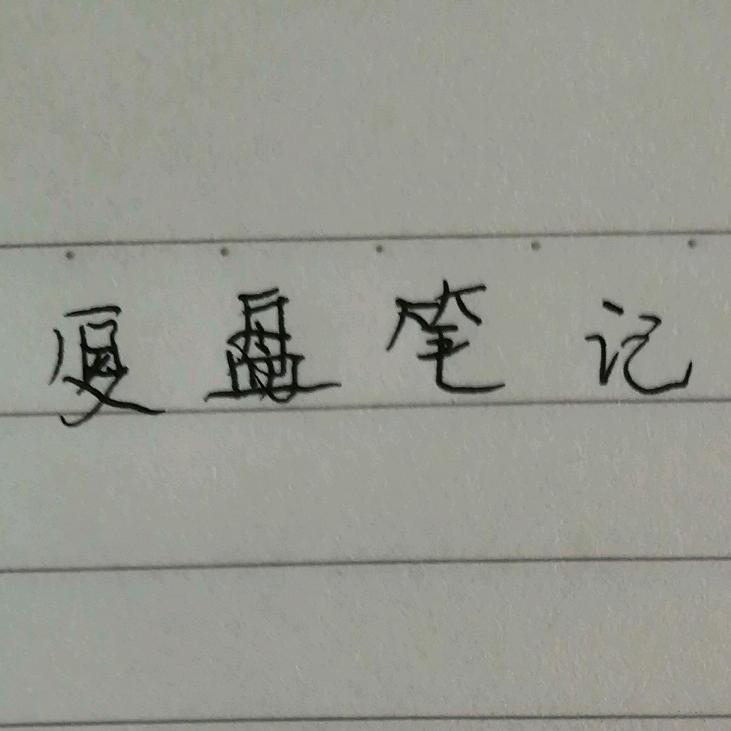 复盘笔记